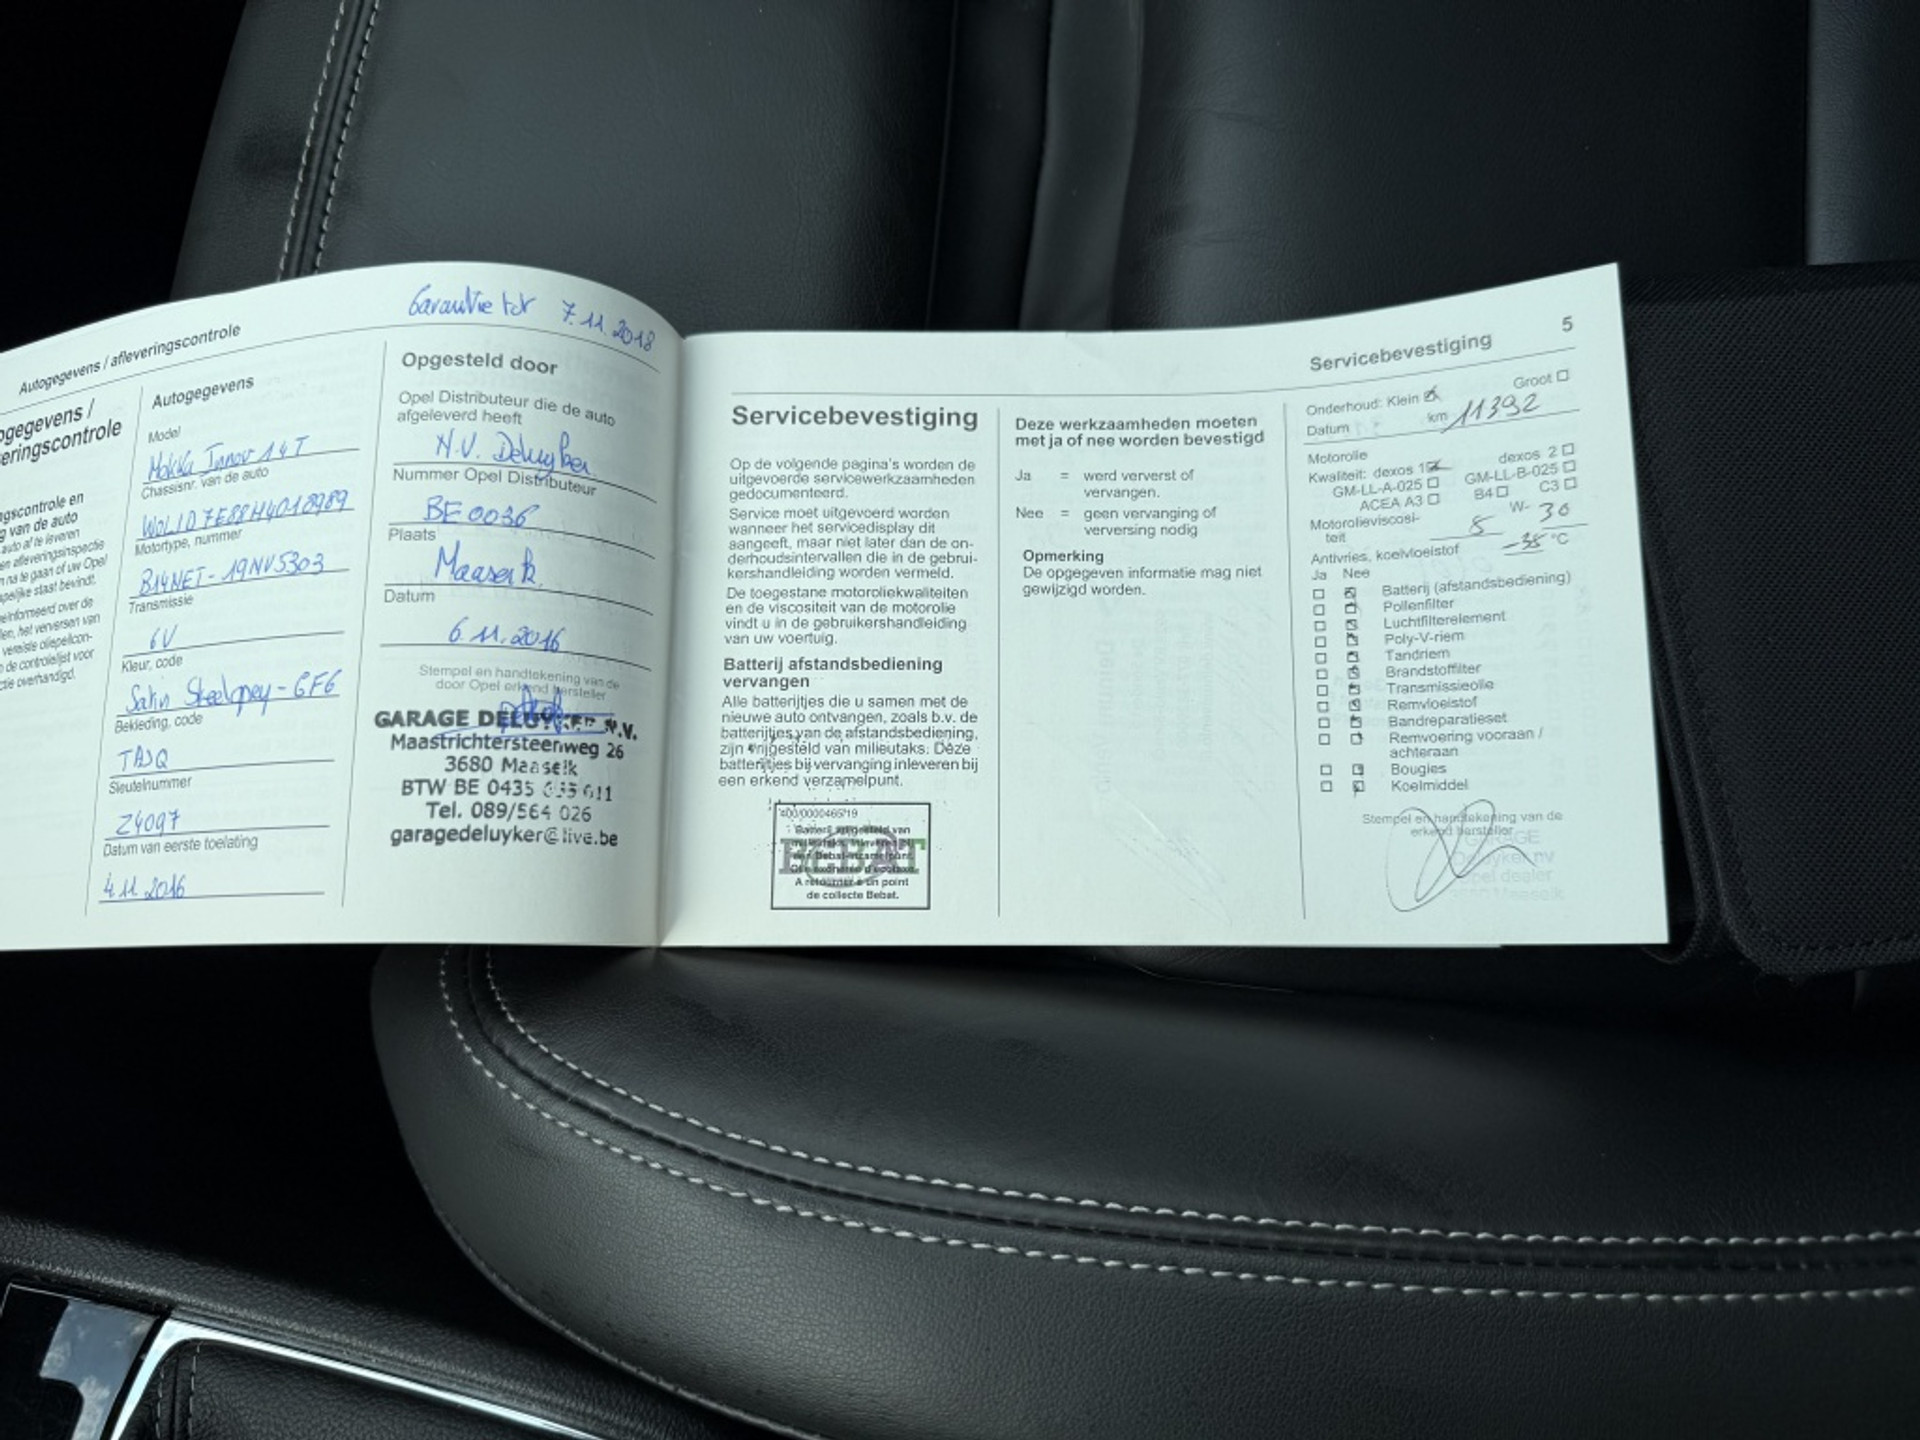 Autogegevens / afleveringscontrole
Garantie tot 7.11.2018
Autogegevens
Model
Mokka Innov 1.4T
Chassisnr. van de auto
Motortype, nummer
B14NET - 19NV5303
Transmissie
6V
Kleur, code
Satin Steelgrey - GF6
Bekleding, code
TASQ
Sleutelnummer
Z4097
Datum van eerste toelating
4.11.2016
Opgesteld door
Opel Distributeur die de auto
afgeleverd heeft
N.V. Deluyker
Nummer Opel Distributeur
BE 0036
Plaats
Maaseik
Datum
6.11.2016
Stempel en handtekening van de
door Opel erkend hersteller
GARAGE DELUYKER N.V.
Maastrichtersteenweg 26
3680 Maaseik
BTW BE 0435
Tel. 089/564 026
garagedeluyker@live.be
Servicebevestiging
Op de volgende pagina's worden de
uitgevoerde servicewerkzaamheden
gedocumenteerd.
Service moet uitgevoerd worden
wanneer het servicedisplay dit
aangeeft, maar niet later dan de on-
derhoudsintervallen die in de gebrui-
kershandleiding worden vermeld.
De toegestane motoroliekwaliteiten
en de viscositeit van de motorolie
vindt u in de gebruikershandleiding
van uw voertuig.
Batterij afstandsbediening
vervangen
Alle batterijtjes die u samen met de
nieuwe auto ontvangen, zoals b.v. de
batterijtjes van de afstandsbediening,
zijn vrijgesteld van milieutaks. Deze
batterijtjes bij vervanging inleveren bij
een erkend verzamelpunt.
400/0000465/19
BEBAT
A retourner à un point
de collecte Bebat.
Deze werkzaamheden moeten
met ja of nee worden bevestigd
Ja = werd ververst of
vervangen.
Nee = geen vervanging of
verversing nodig
Opmerking
De opgegeven informatie mag niet
gewijzigd worden.
Servicebevestiging 5
Onderhoud: Klein Groot
Datum km 11392
Motorolie
Kwaliteit: dexos 1 dexos 2
GM-LL-A-025 GM-LL-B-025
ACEA A3 B4 C3
Motorolieviscosi-
teit 5 W- 30
Antivries, koelvloeistof -35 °C
Ja Nee
Batterij (afstandsbediening)
Pollenfilter
Luchtfilterelement
Poly-V-riem
Tandriem
Brandstoffilter
Transmissieolie
Remvloeistof
Bandreparatieset
Remvoering vooraan /
achteraan
Bougies
Koelmiddel
Stempel en handtekening van de
erkend hersteller
GARAGE
Deluyker nv
Opel dealer
3680 Maaseik